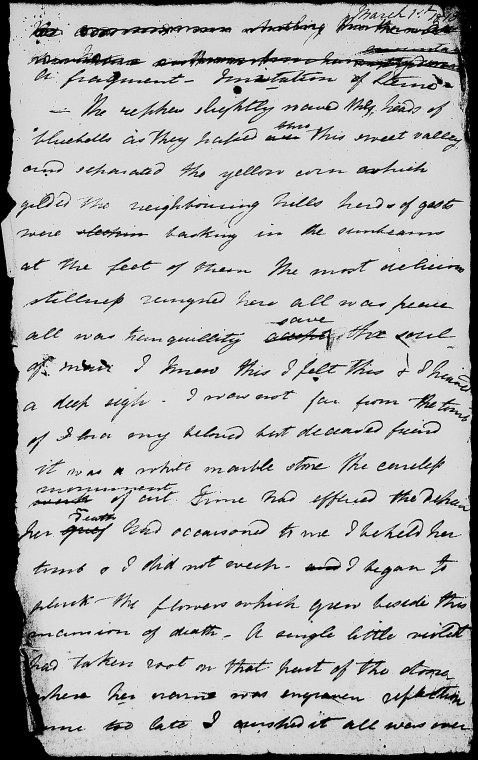 March 1st
A fragment - Imitation of Sterne -
- The zephers slightly moved the heads of
bluebells as they passed thro this sweet valley
and separated the yellow corn which
gilded the neighbouring hills herds of goats
were basking in the sunbeams
at the feet of them the most delicious
stillness reingned here all was peace
all was tranquillity save the soul
of man I knew this I felt this & I heaved
a deep sigh - I was not far from the tomb
of my beloved but deceased friend
it was a white marble stone the careless
monument of art Time had effaced the despair
her Death had occasioned to me I beheld her
tomb & I did not weep - I began to
pluck the flowers which grew beside this
mansion of death - A single little violet
had taken root on that part of the stone
where her name was engraven reflection
came too late I crushed it all was over